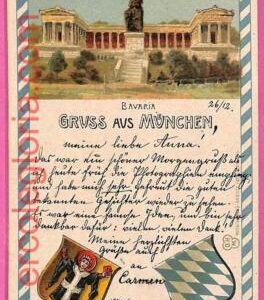 BAVARIA
26/12.
GRUSS AUS MÜNCHEN,
meine liebe Anna!
Das war ein schöner Morgengruß als
ich heute früh die Photographie empfing
und habe mich sehr gefreut die guten
bekannten Gesichter wieder zu sehen.
Es war eine famose Idee, und bin sehr
dankbar dafür: vielen, vielen Dank!
Meine herzlichsten
Grüße auch
an
Carmen